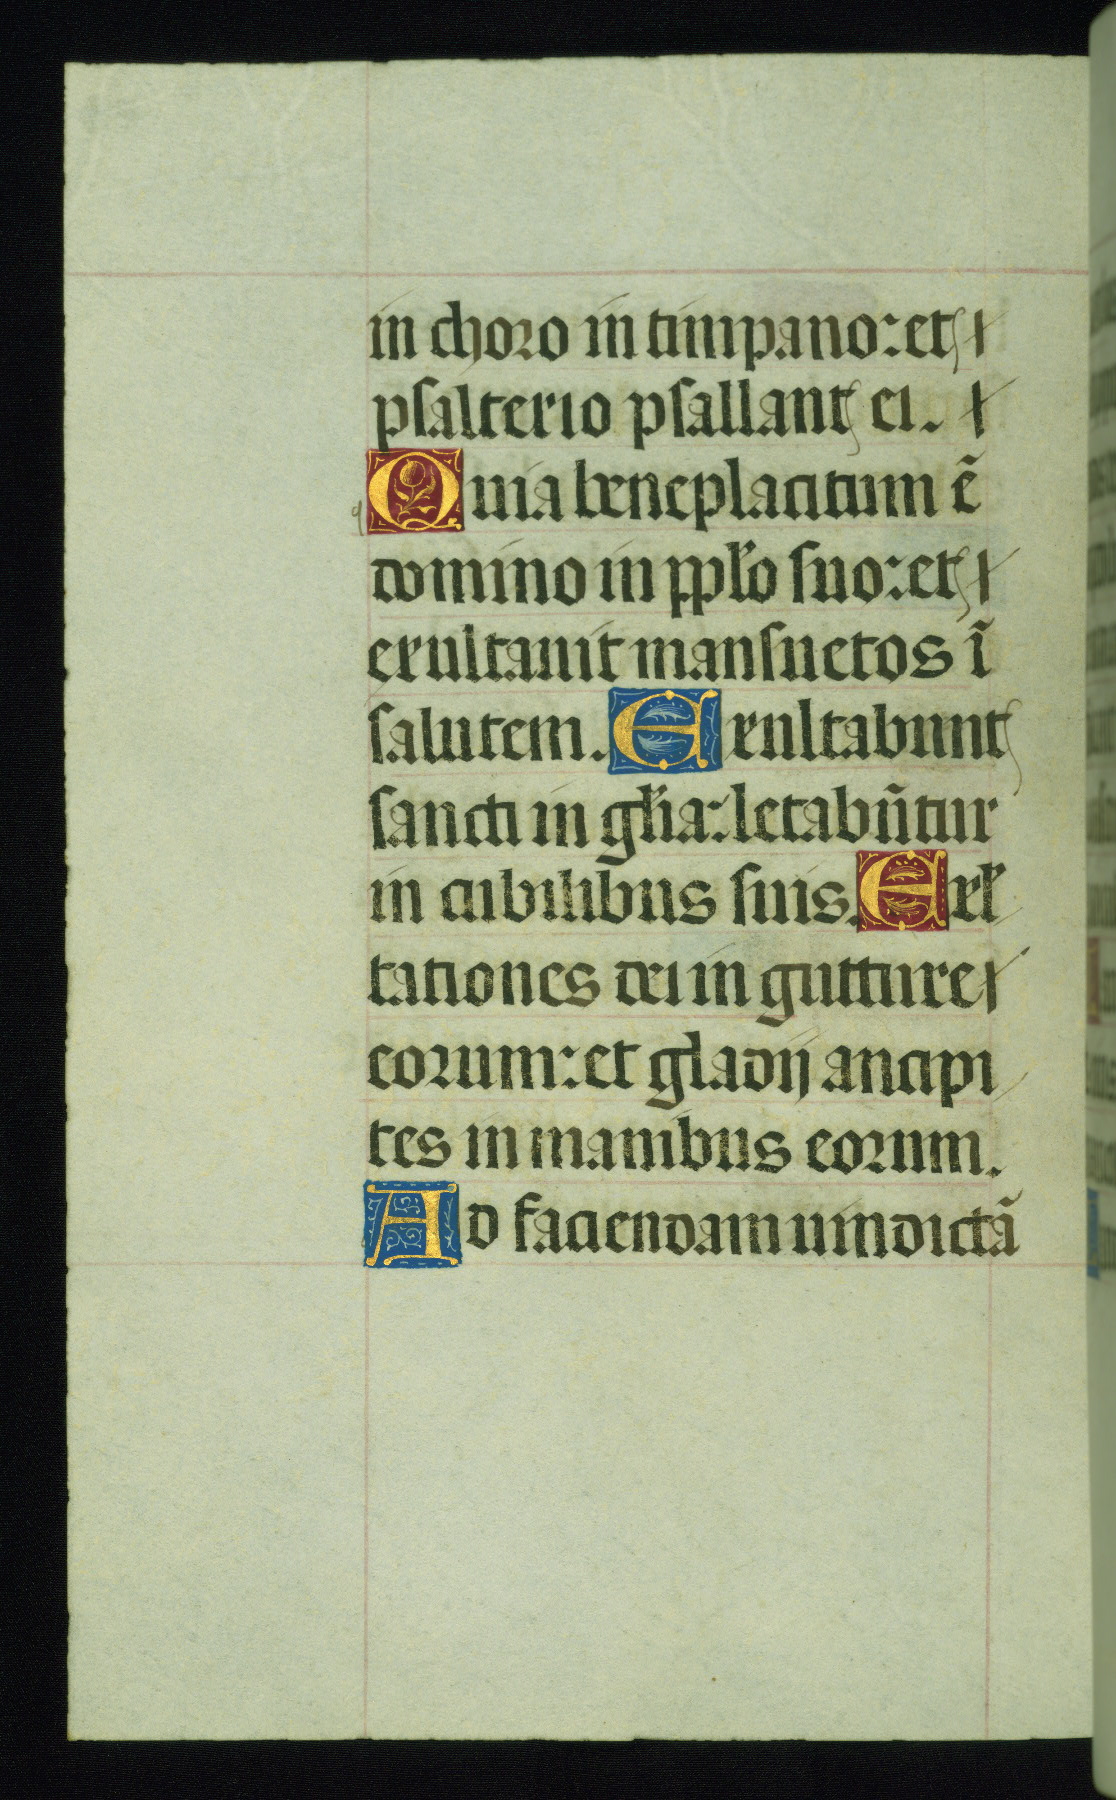 in choro in timpano: et
psalterio psallant ei.
Quia beneplacitum ē
domino in pplo suo: et
exultauit mansuetos ī
salutem. Exultabunt
sancti in glia: letabūtur
in cubilibus suis. Exl
tationes dei in gutture
eorum: et gladij ancipi
tes in manibus eorum.
Ad faciendam uindictā